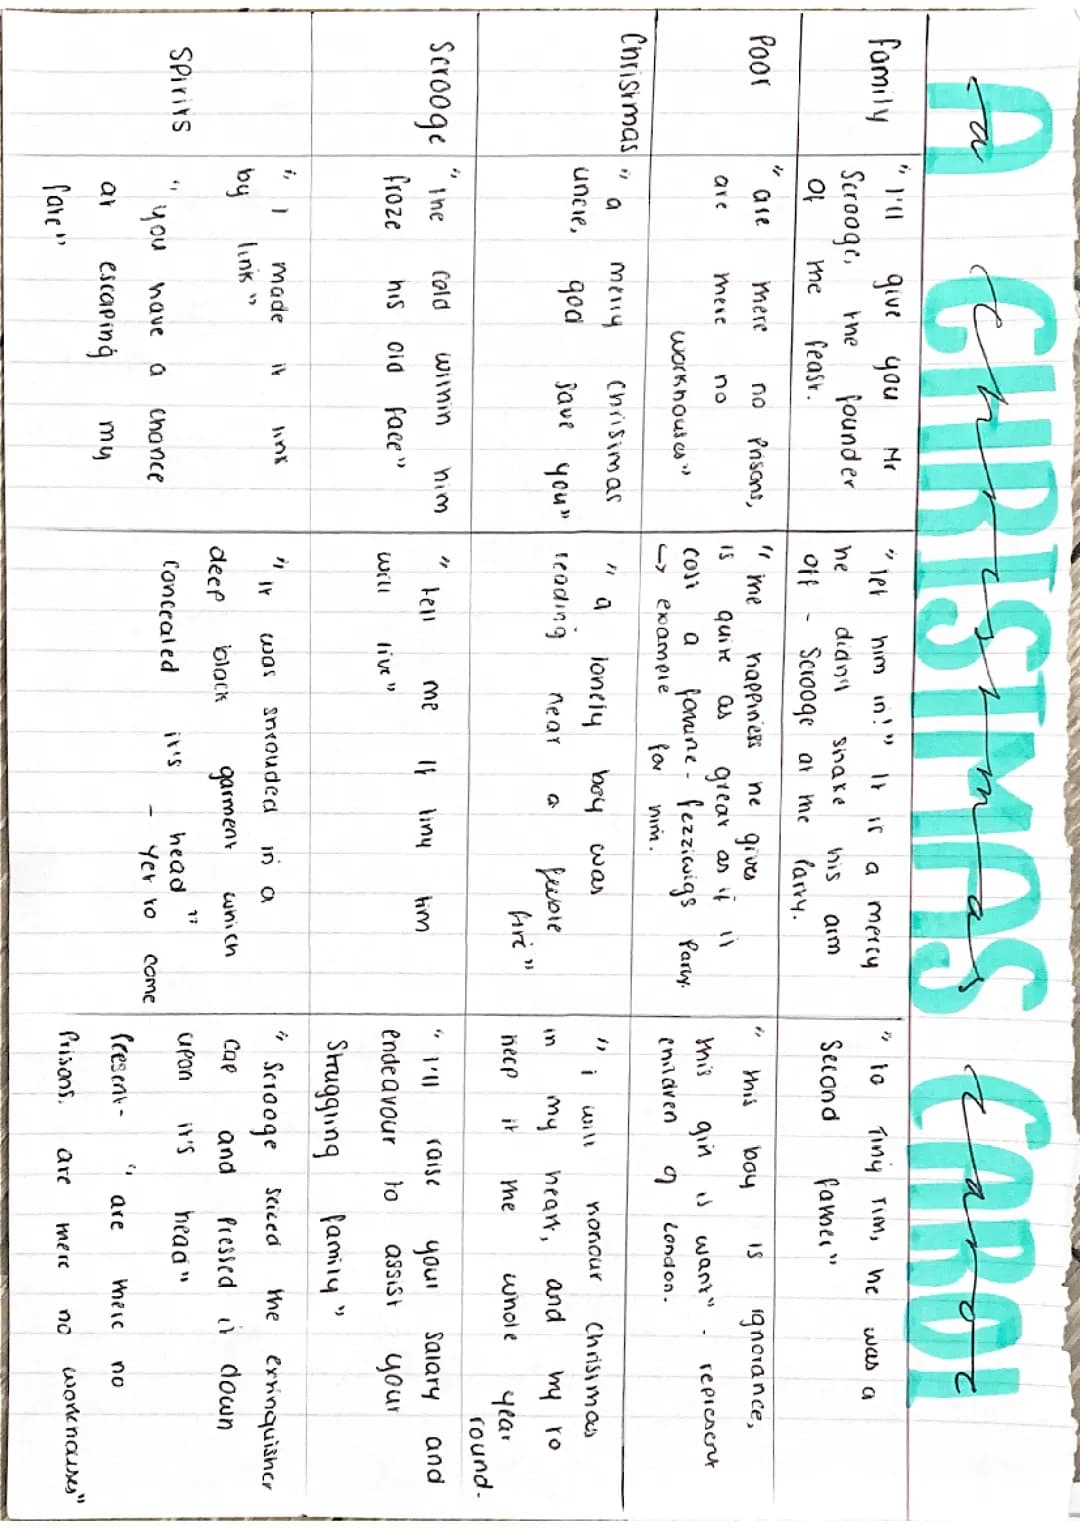 A CHRISTMAS CAROL
a christmas carol
family
"I'll give you Mr
Scrooge, the founder
of the feast.
"let him in!" It is a mercy
he didn't shake his arm
off - Scrooge at the
party.
"To Tiny Tim, he was a
second father"
Poor
"are there no prisons,
are there no
workhouses"
"the happiness he gives
is quite as great as if it
cost a fortune - fezziwigs party.
→ example for him.
"this boy is ignorance,
this girl is want" - represent
children of London.
Christmas
"a merry christmas
uncle, god save you"
"a lonely boy was
reading near a feeble
fire"
"i will honour Christmas
in my heart, and try to
keep it the whole year
round.
Scrooge
"The cold within him
froze his old face"
"tell me if tiny tim
will live"
"I'll raise your salary and
endeavour to assist your
struggling family"
Spirits
"I made it link
by link"
"you have a chance
at escaping my
fate"
"it was shrouded in a
deep black garment which
concealed it's head"
- Yet to come
"Scrooge seized the extinguisher
cap and pressed it down
upon it's head"
Present- "are there no
prisons. are there no workhouses"